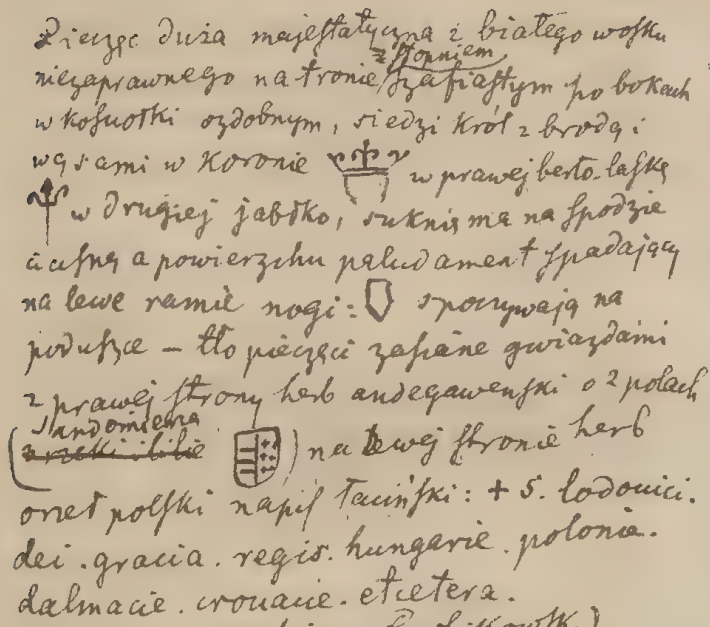 Pieczęć duża majestatyczna z białego wosku
z stopniem
niezaprawnego na tronie szafiastym po bokach
w kosuotki ozdobnym, siedzi król z brodą i
wąsami w koronie w prawej berło-laskę
w drugiej jabłko, suknię ma na spodzie
ciasną a powierzchu paludament spadający
na lewe ramie nogi: spoczywają na
poduszce – tło pieczęci zasiane gwiazdami
z prawej strony herb andegaweński o 2 polach
Sandomierza
(z rzeki i lilie ) na lewej stronie herb
orzeł polski napis łaciński: + S. lodouici.
dei . gracia . regis . hungarie . polonie .
dalmacie . crouacie . etcetera .